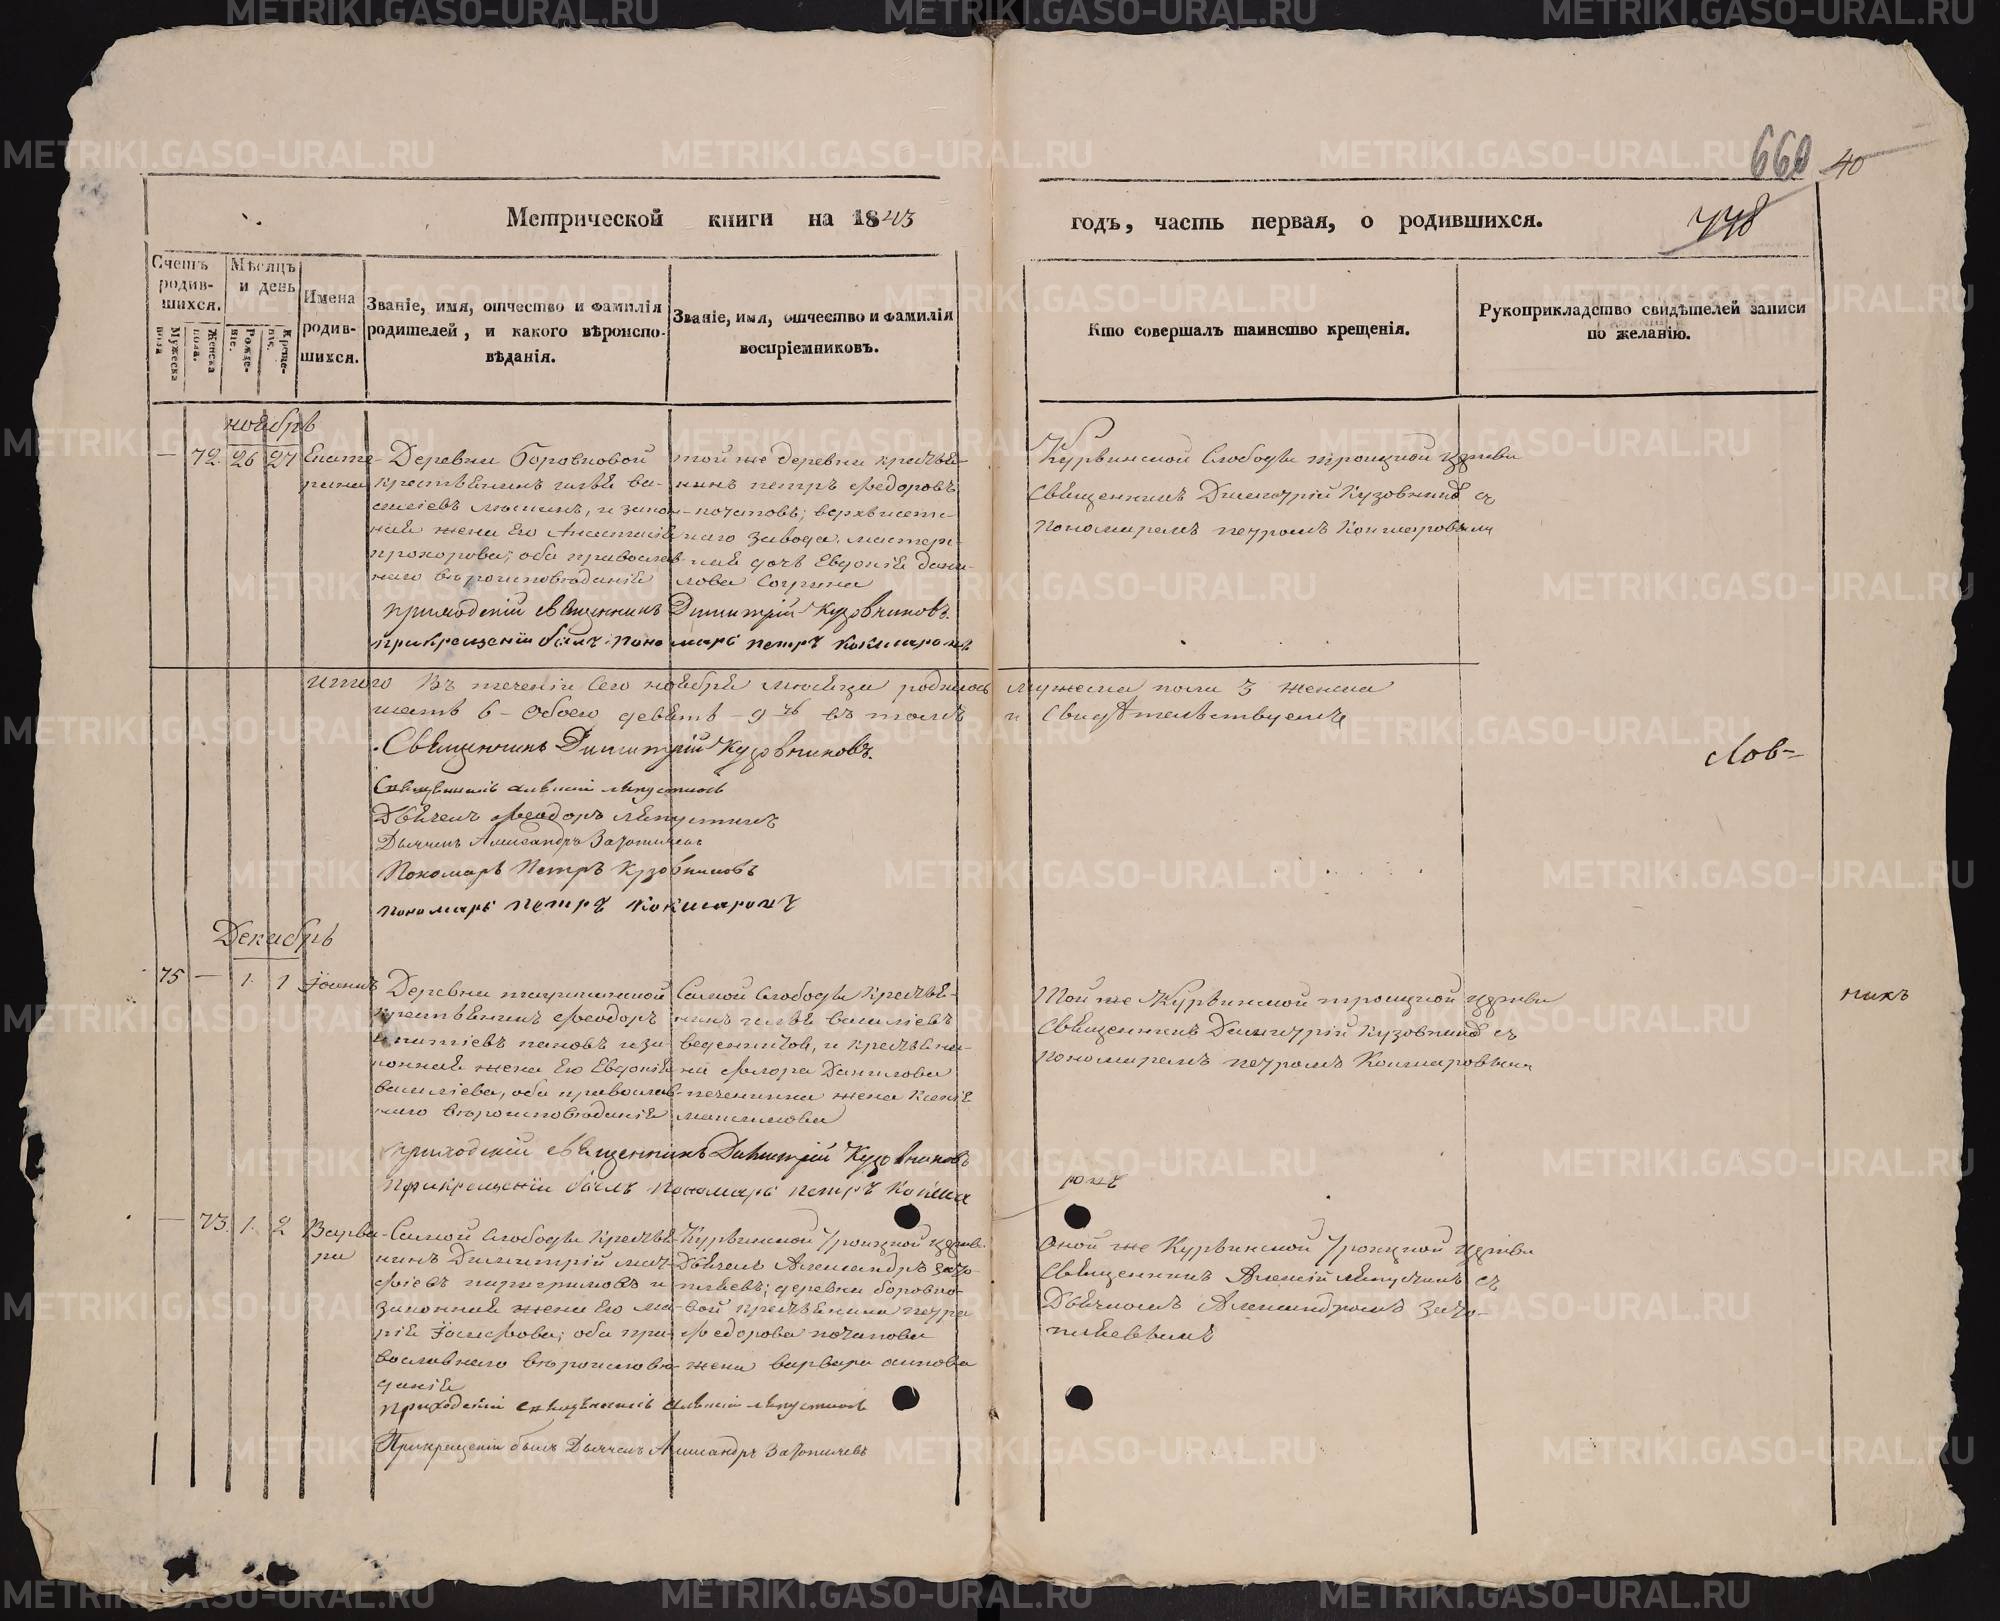 660 40
Метрической книги на 1843 годъ, часть первая, о родившихся.
778
Счетъ родив-шихся.
Мѣсяцъ и день
Мужеска пола
Женска пола.
Рожде-нія.
Креще-нія.
Имена родив-шихся.
Званіе, имя, отчество и фамилія родителей, и какого вѣроиспо-вѣданія.
Званіе, имя, отчество и фамилія воспріемниковъ.
Кто совершалъ таинство крещенія.
Рукоприкладство свидѣтелей записи по желанію.
ноябрь
— 72. 26 27 Екате-
рина
Деревни Боровковой
крестьянинъ Илья Ва-
силіевъ и закон-
ная жена Его Анастасія
Прохорова; оба православ-
наго вѣроисповѣданія
той же деревни крестья-
нинъ Петръ Федоровъ
Потаповъ;
наго завода мастер-
ская дочь Евдокія Дани-
лова
Слободы троицкой церкви
Священникъ Димитрій Кузовник. съ
пономаремъ Петромъ Кокшаровымъ
приходскій священникъ Димитрій Кузовниковъ.
При крещеніи былъ пономарь Петръ Кокшаровъ
Итого въ теченіи Сего ноября месяца родилось мужеска пола 3 женска
шесть 6 – обоего девять – 9 ть въ томъ и свидѣтельствуемъ
Священникъ Димитрій Кузовниковъ.
Священникъ Алексій Ляпустинъ
Дьячекъ Феодоръ Ляпустинъ
Дьячекъ Александръ Затопляевъ
Пономарь Петръ Кузовниковъ
Пономарь Петръ Кокшаровъ
слов-
Декабрь
75 — 1. 1 Іоаннъ
Деревни
крестьянинъ Феодоръ
Ипатіевъ Пановъ и за-
конная жена Его Евдокія
Василіева, оба православ-
наго вѣроисповѣданія
Самой Слободы Крестья-
нинъ Илья Василіевъ
и крестьяни-
на Флора Данилова
Печенкина жена Ксенія
Максимова
Той же троицкой церкви
Священникъ Димитрій Кузовник. съ
пономаремъ Петромъ Кокшаровымъ
никъ
приходскій священникъ Димитрій Кузовниковъ
При крещеніи былъ Пономарь Петръ Кокша
ровъ
— 73. 1. 2 Варва-
ра
Самой Слободы Крестья-
нинъ Димитрій Мат-
фіевъ и
законная жена Его Ма-
рія Іосифова; оба пра-
вославнаго вѣроисповѣ-
данія
Троицкой церкви
Дьячекъ Александръ Зато-
пляевъ; деревни Боровко-
вой крестьянина Петра
Федорова Потапова
жена Варвара
Оной же Троицкой церкви
Священникъ Алексій Ляпустинъ съ
Дьячкомъ Александромъ Зато-
пляевымъ
Приходскій священникъ Алексій Ляпустинъ
При крещеніи былъ Дьячекъ Александръ Затопляевъ